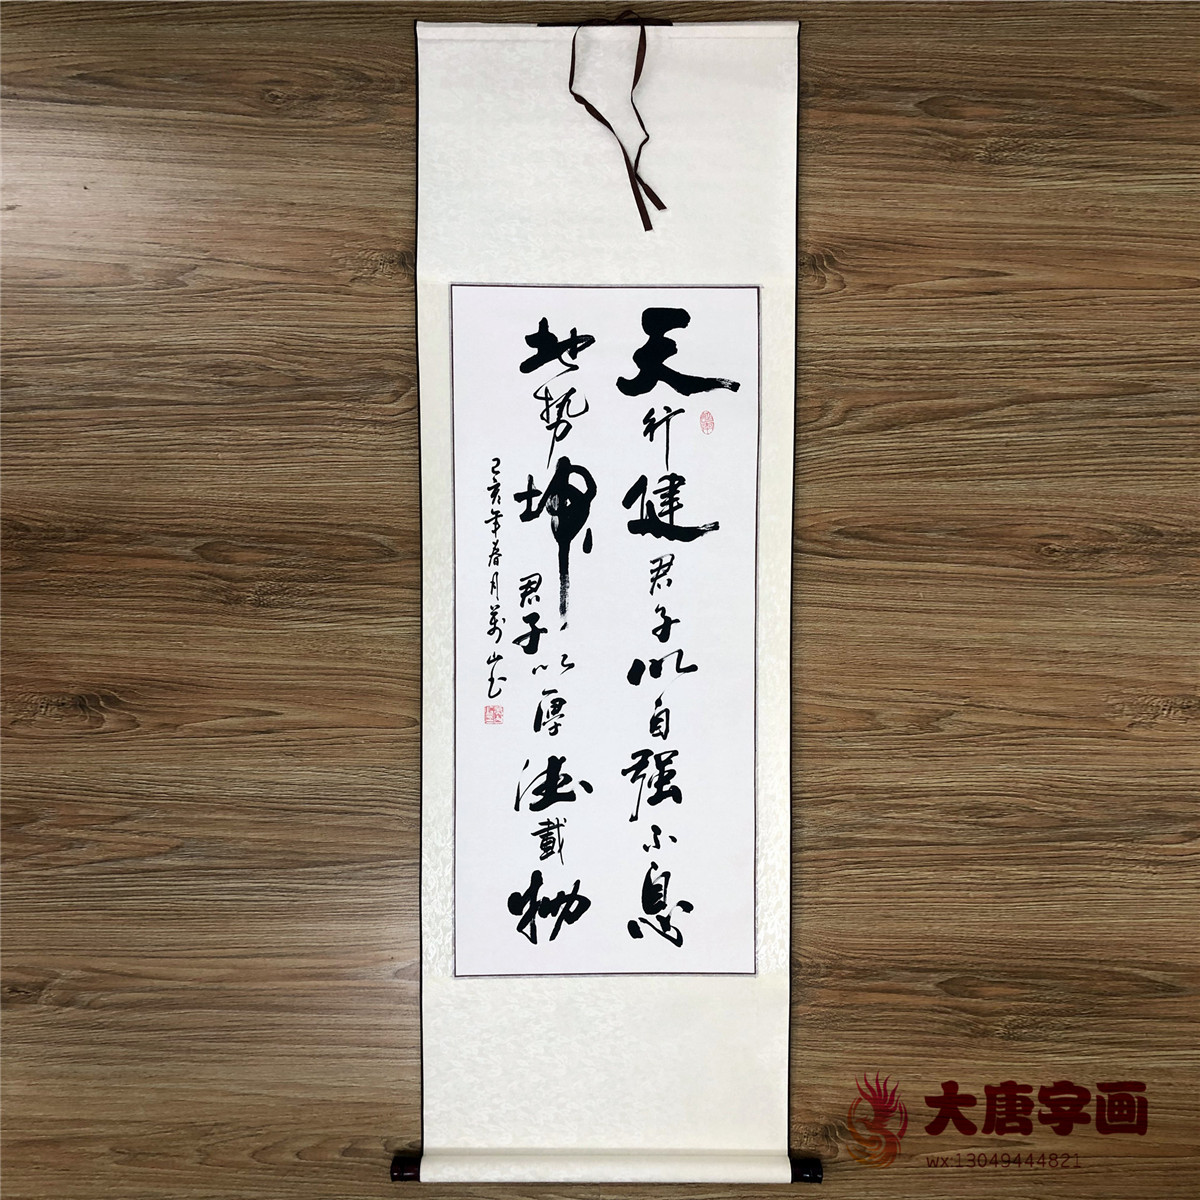 天行健君子以自强不息
地势坤君子以厚德载物
己亥年春月万山书
大唐字画
wx:13049444821